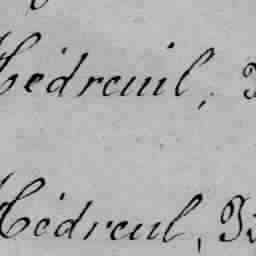 Hédreuil,
Hédreul,